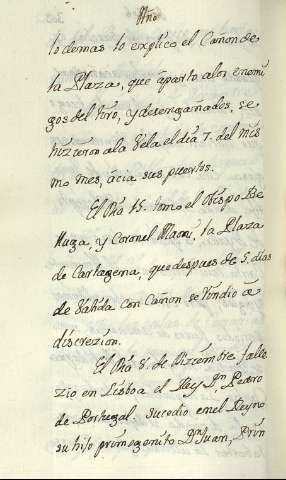 Año
lo demas lo explicò el Cañon de
la Plaza, que apartò a los enemi
gos del tiro, y desengañados, se
hizieron a la Vela el dia 7. del mis
mo mes, àcia sus puertos.
El Dia 15. tomò el Obispo Be
lluga, y Coronel Maoni, la Plaza
de Cartagena, que despues de 5. dias
de batida con Cañon se rindiò à
discrezion.
El Dia 8. de Diziembre falle
zio en Lisboa el Rey Dn. Pedro
de Portugal. Sucediò en el Reyno
su hijo primogenito Dn. Juan, Prin